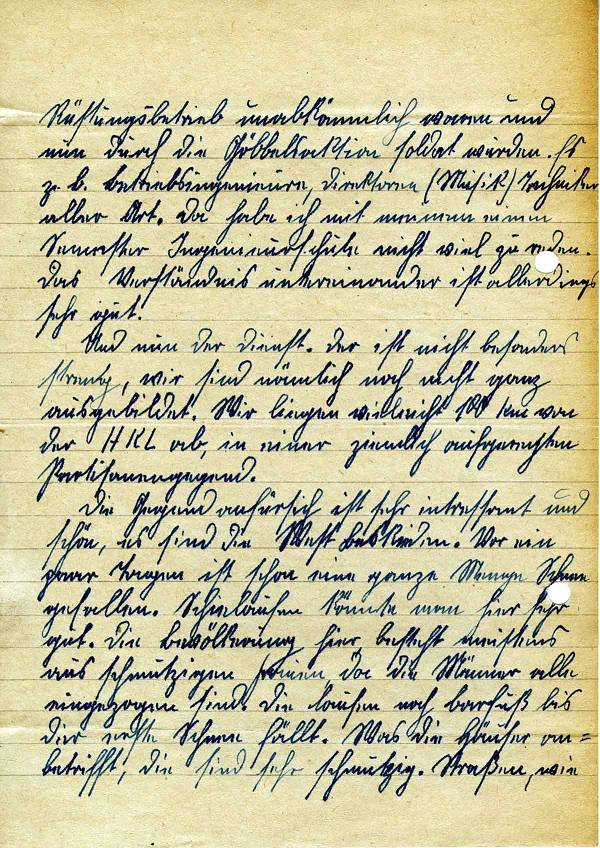 Rüstungsbetrieb unabkömmlich waren und
nun durch die Göbbelsaktion Soldat wurden. Es
z. B. Betriebsingenieure, Direktoren (Musik) Techniker
aller Art. Da habe ich mit meinem einen
Semester Ingenieurschule nicht viel zu reden.
Das Verständnis untereinander ist allerdings
sehr gut.
Und nun der Dienst. Der ist nicht besonders
streng, wir sind nämlich noch nicht ganz
ausgebildet. Wir liegen vielleicht 100 km von
der HKL ab, in einer ziemlich aufgeregten
Partisanengegend.
Die Gegend anfürsich ist sehr intressant und
schön, es sind die West Beskiden. Vor ein
paar Tagen ist schon eine ganze Menge Schnee
gefallen. Schielaufen könnte man hier sehr
gut. Die Bevölkerung hier besteht meistens
aus schmutzigen Frauen, da die Männer alle
eingezogen sind. Die laufen noch barfuß bis
der erste Schnee fällt. Was die Häuser an=
betrifft, die sind sehr schmutzig. Straßen, wie